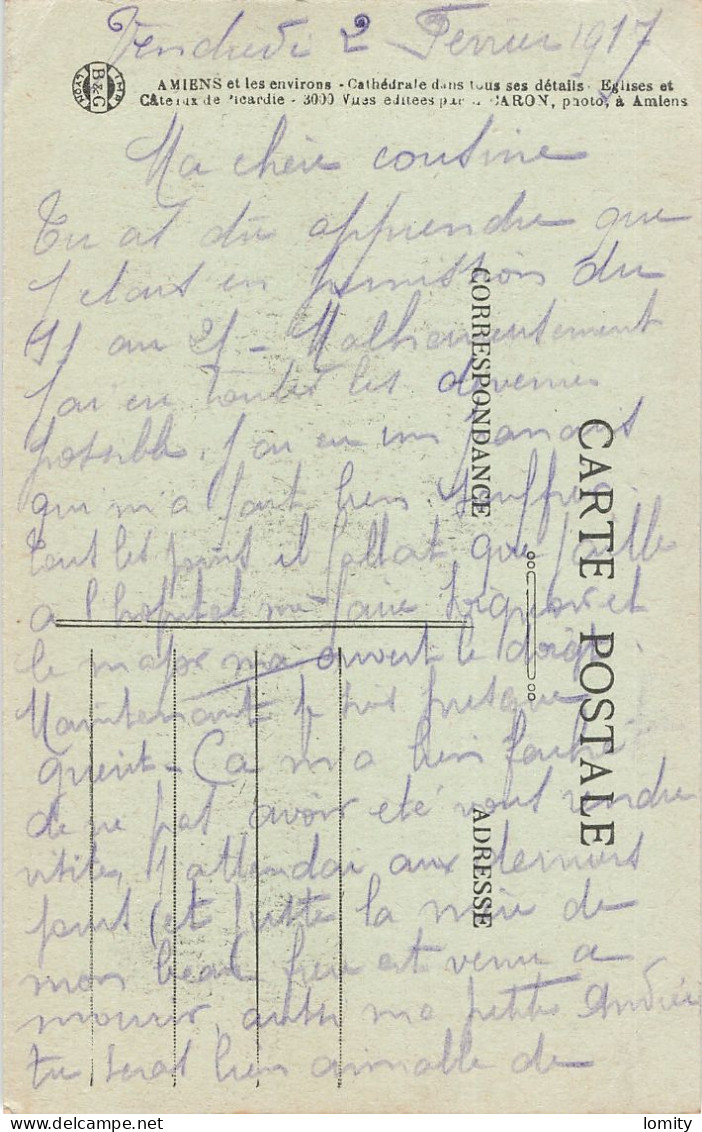 Vendredi 2 Fevrier 1917
IMP B&G LYON
AMIENS et les environs - Cathédrale dans tous ses détails - Eglises et
Châteaux de Picardie - 3000 Vues éditées par CARON, photo, à Amiens
Ma chère cousine
Tu as dû apprendre que
j etais en permission du
11 au 21 - Malheureusement
j'ai eu toutes les
possible, j'ai eu un panaris
qui m'a fait bien souffrir
tout les jours il fallait que j'aille
a l'hopital me faire soigner et
le major m'a ouvert le doigt
Maintenant je suis presque
guerit - Ca m'a bien
de ne pas avoir eté vous rendre
visite, j'attendai aux derniers
jours et juste la mère de
mon beau frere est venu a
mourir, aussi ma petite Andrée
tu seras bien aimable de
CORRESPONDANCE
CARTE POSTALE
ADRESSE
lomity